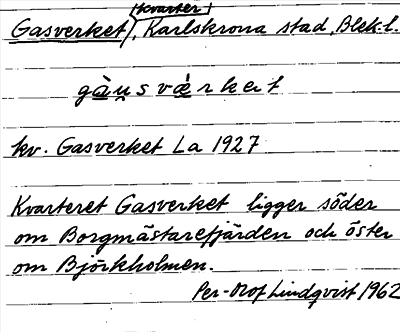 (kvarter)
Gasverket, Karlskrona stad, Blek. l.
gàu̯sværket
kv. Gasverket La 1927
Kvarteret Gasverket ligger söder
om Borgmästarefjärden och öster
om Björkholmen.
Per-Olof Lindqvist 1962